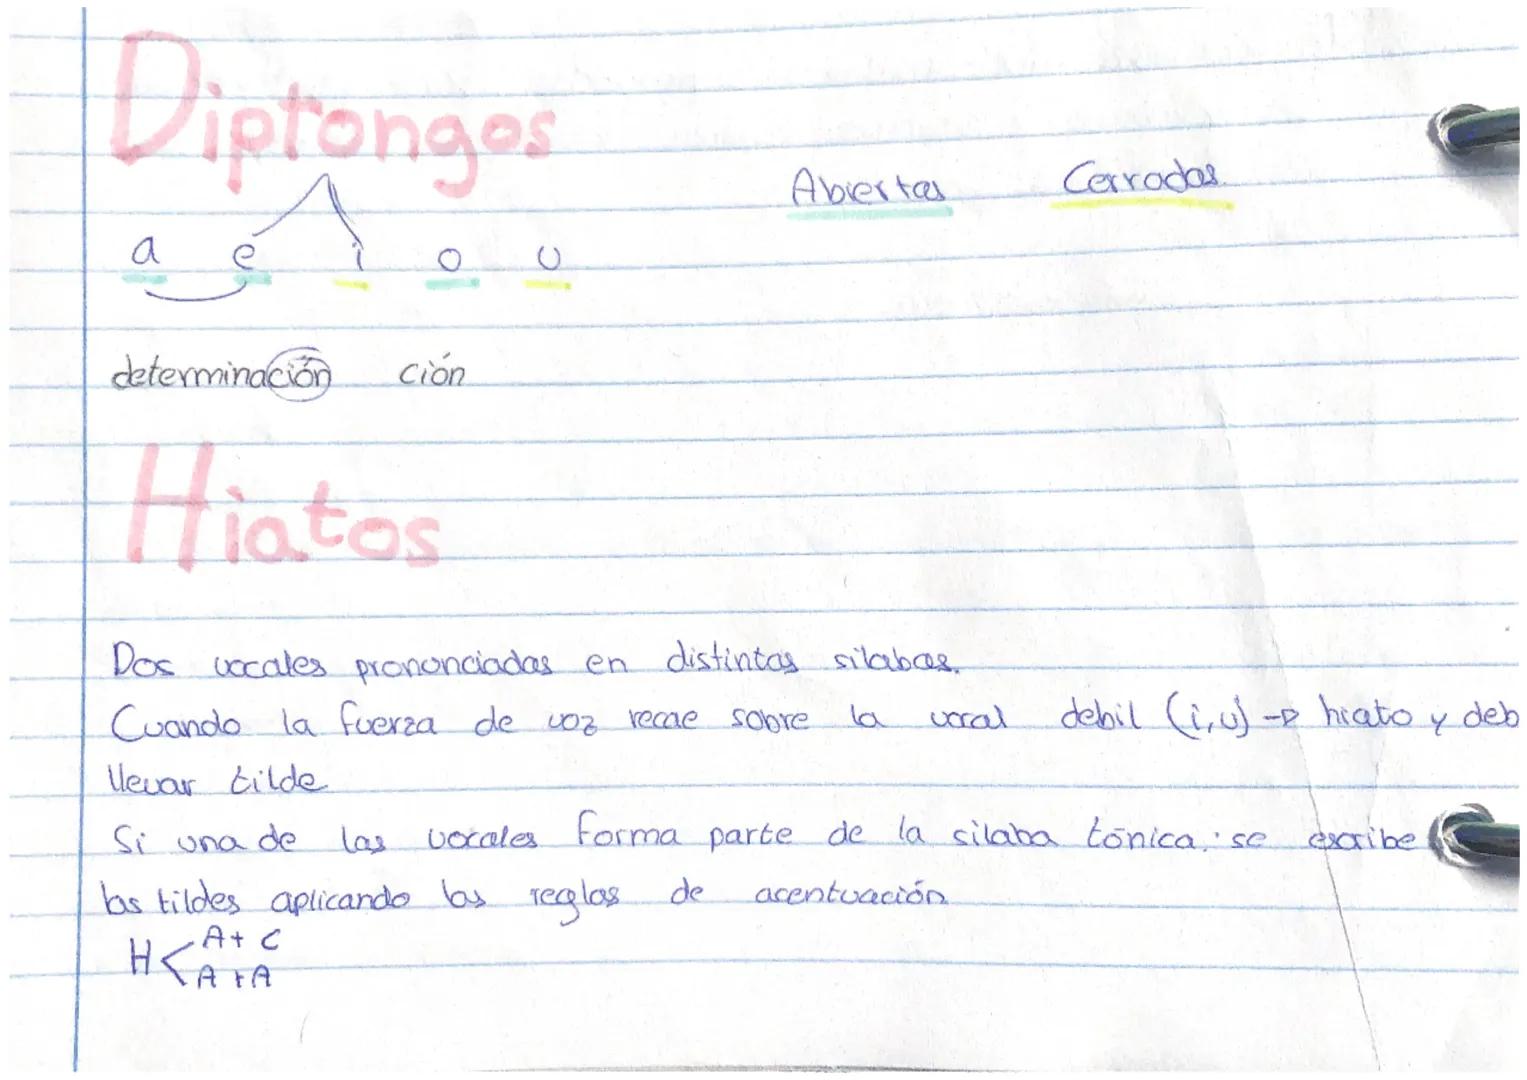 Diptongos
Abiertas Cerradas
a e i o u
determinación ción
Hiatos
Dos vocales pronunciadas en distintas silabas.
Cuando la fuerza de voz recae sobre la vocal debil (i,u) → hiato y deb
llevar tilde
Si una de las vocales forma parte de la silaba tónica: se escribe
las tildes aplicando las reglas de acentuación
H < A+ C
A + A